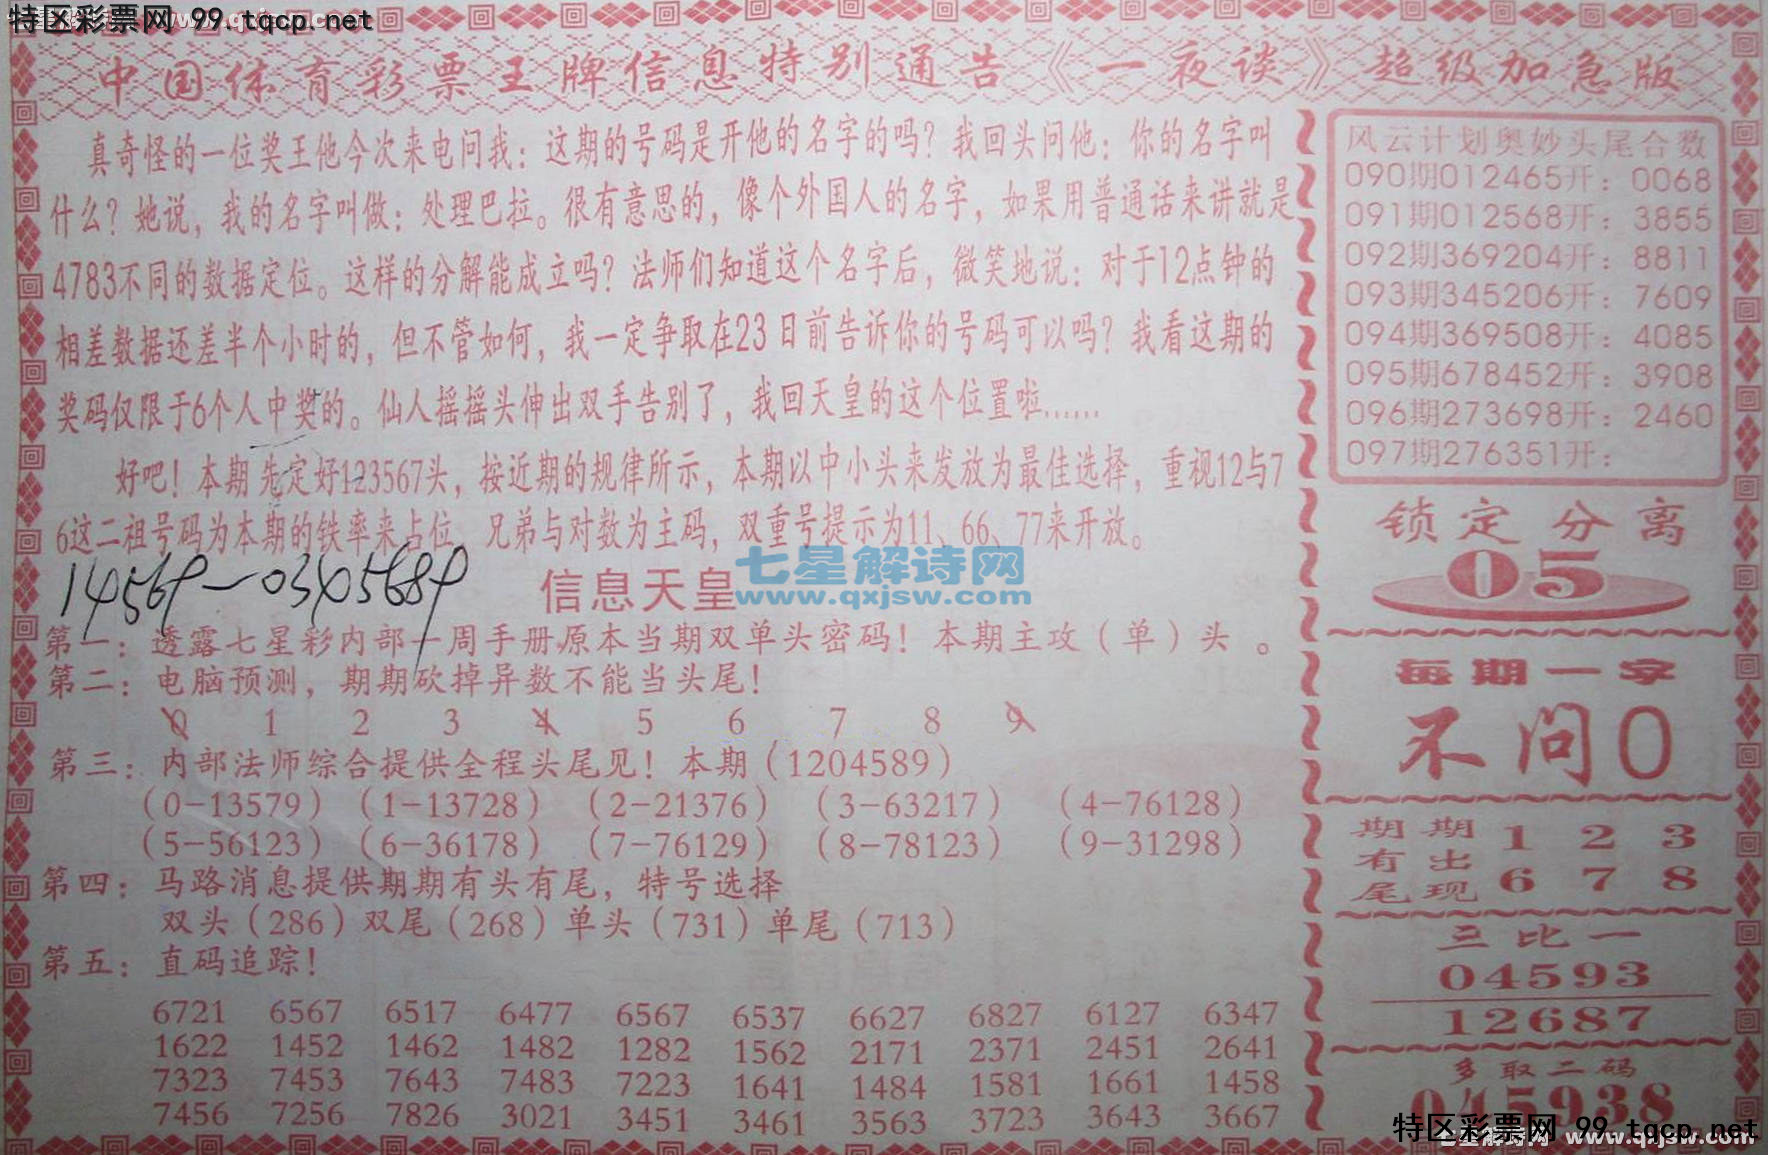 特区彩票网 99.tqcp.net
中国体育彩票王牌信息特别通告《一夜谈》超级加急版
真奇怪的一位奖王他今次来电问我：这期的号码是开他的名字的吗？我回头问他：你的名字叫
什么？她说，我的名字叫做：处理巴拉。很有意思的，像个外国人的名字，如果用普通话来讲就是
4783不同的数据定位。这样的分解能成立吗？法师们知道这个名字后，微笑地说：对于12点钟的
相差数据还差半个小时的，但不管如何，我一定争取在23日前告诉你的号码可以吗？我看这期的
奖码仅限于6个人中奖的。仙人摇摇头伸出双手告别了，我回天皇的这个位置啦……
好吧！本期先定好123567头，按近期的规律所示，本期以中小头来发放为最佳选择，重视12与7
6这二祖号码为本期的铁率来占位，兄弟与对数为主码，双重号提示为11、66、77来开放。
14569-0345689
信息天皇
七星解诗网
www.qxjsw.com
第一：透露七星彩内部一周手册原本当期双单头密码！本期主攻（单）头 。
第二：电脑预测，期期砍掉异数不能当头尾！
0 1 2 3 4 5 6 7 8 9
第三：内部法师综合提供全程头尾见！本期（1204589）
（0-13579）（1-13728）（2-21376）（3-63217）（4-76128）
（5-56123）（6-36178）（7-76129）（8-78123）（9-31298）
第四：马路消息提供期期有头有尾，特号选择
双头（286）双尾（268）单头（731）单尾（713）
第五：直码追踪！
6721 6567 6517 6477 6567 6537 6627 6827 6127 6347
1622 1452 1462 1482 1282 1562 2171 2371 2451 2641
7323 7453 7643 7483 7223 1641 1484 1581 1661 1458
7456 7256 7826 3021 3451 3461 3563 3723 3643 3667
风云计划奥妙头尾合数
090期012465开：0068
091期012568开：3855
092期369204开：8811
093期345206开：7609
094期369508开：4085
095期678452开：3908
096期273698开：2460
097期276351开：
锁定分离
05
每期一字
不问0
期期 1 2 3
有出
尾现 6 7 8
三比一
04593
12687
多取二码
045938
特区彩票网 99.tqcp.net
七星解诗网 www.qxjsw.com